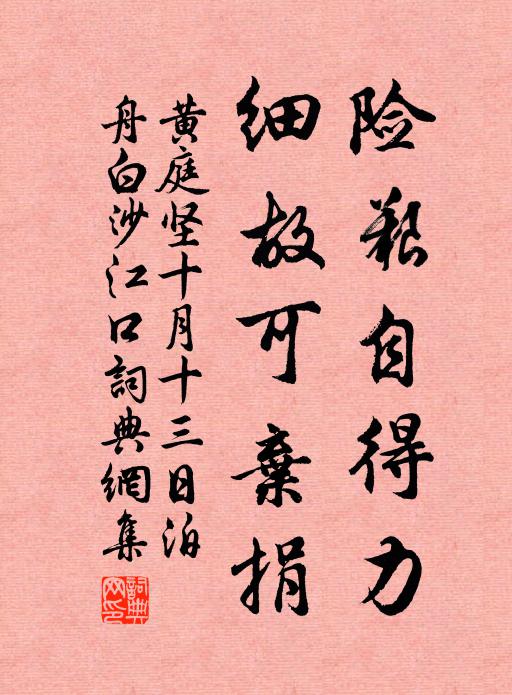 险艰自得力
细故可棄捐
黄庭坚十月十三日泊
舟白沙江口詞典網集
詞典網印